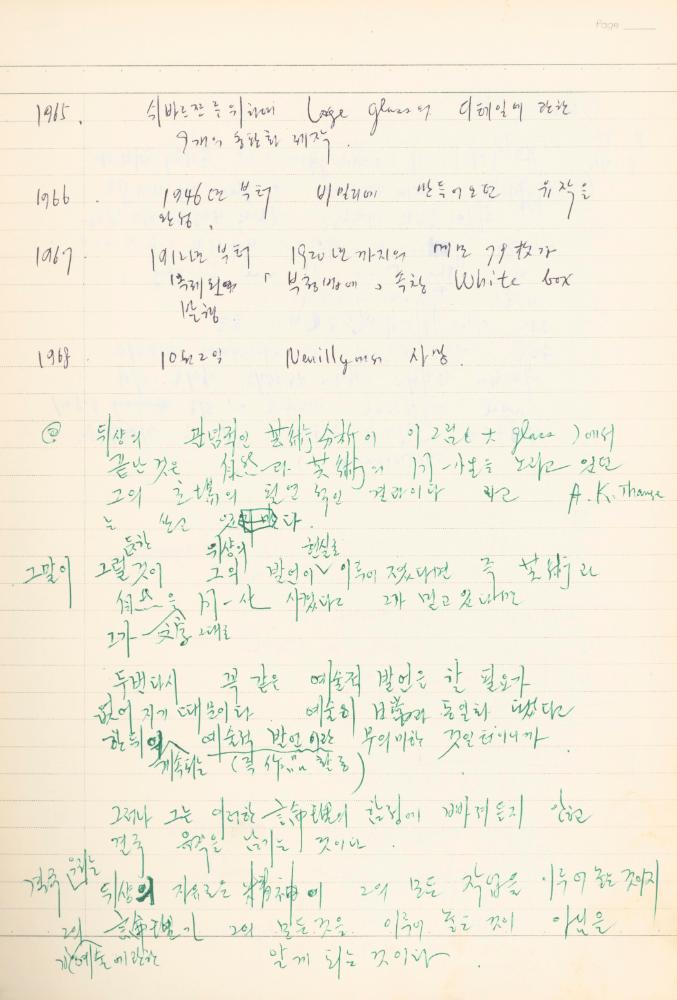 Page
1965. 쉬바르쯔를 위하여 Large glass의 디테일에 관한
9개의 동판화 제작.
1966. 1946년 부터 비밀리에 만들어오던 유작을
완성.
1967. 1912년 부터 1920년까지의 메모 79枚가
복제된 「부정법에」 속칭 White box
발행.
1968. 10월 2일 Neuilly에서 사망.
@ 뒤샹의 관념적인 芸術分析이 이 그림(大 glass)에서
끝난 것은 自然과 芸術의 同一化를 노리고 있던
그의 의 필연적인 결과이다 라고 A.K.
는 쓰고 있다.
듯한 뒤샹의 현실로
그말이 그럴 것이 그의 발언이 이루어 졌다면 즉 芸術과
自然을 同一化 시켰다고 그가 믿고 있다면
그가 文字 그대로
두번다시 꼭 같은 예술적 발언은 할 필요가
없어 지기 때문이다. 예술이 日常과 동일화 됐다고
한 뒤의 예술적 발언이란 무의미한 것일 터이니까.
계속되는 (즉 作品 활동)
그러나 그는 이러한 命題의 함정에 빠져 들지 않고
결국 유작을 남기는 것이다.
결국 우리는 뒤샹의 자유로운 精神이 그의 모든 작업을 이루어 놓는 것이지
그의 命題가 그의 모든것을 이루어 놓는 것이 아님을
예술에 관한 알게 되는 것이다.